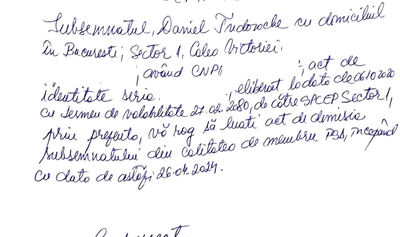 Subsemnatul, Daniel Tudorache cu domiciliul
în Bucuresti, Sector 1, Calea Victoriei
, având CNP ; act de
identitate seria , eliberat la data de 06.10.2020
cu termen de valabilitate 27.02.2080, de către SPCEP Sector 1,
prin prezenta, vă rog să luati act de demisia
subsemnatului din calitatea de membru PSD, începând
cu data de astăzi 26.04.2024.